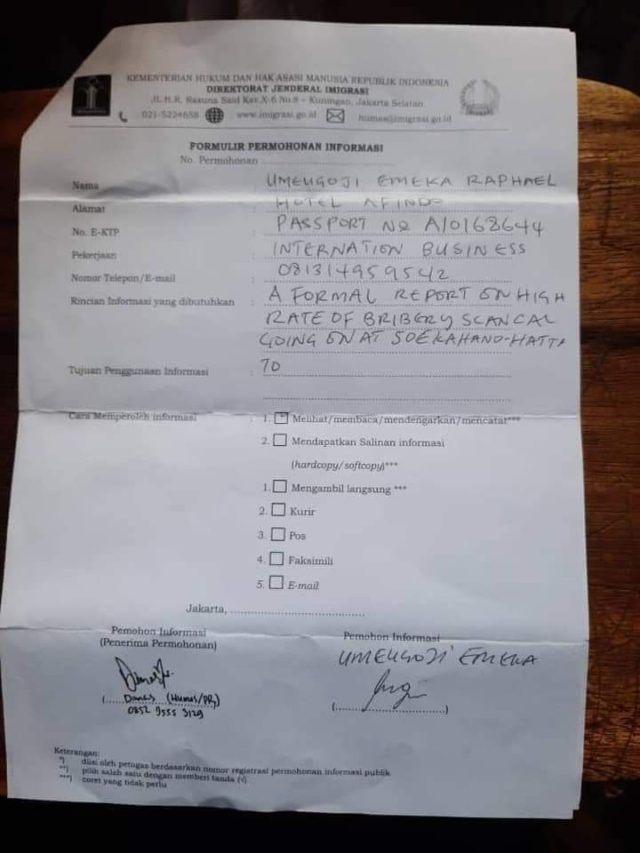 KEMENTERIAN HUKUM DAN HAK ASASI MANUSIA REPUBLIK INDONESIA
DIREKTORAT JENDERAL IMIGRASI
JL.H.R. Rasuna Said Kav.X-6 No.8 – Kuningan, Jakarta Selatan
021-5224658 www.imigrasi.go.id humas@imigrasi.go.id
FORMULIR PERMOHONAN INFORMASI
No. Permohonan
Nama : UMEUGOJI EMEKA RAPHAEL
Alamat : HOTEL AFINDO
No. E-KTP : PASSPORT No A10168644
Pekerjaan : INTERNATION BUSINESS
Nomor Telepon/E-mail : 081314959542
Rincian Informasi yang dibutuhkan : A FORMAL REPORT ON HIGH
RATE OF BRIBERY SCANCAL
GOING ON AT SOEKAHANO-HATTA
Tujuan Penggunaan Informasi : TO
Cara Memperoleh informasi : 1. Melihat/membaca/mendengarkan/mencatat***
2. Mendapatkan Salinan informasi
(hardcopy/softcopy)***
1. Mengambil langsung ***
2. Kurir
3. Pos
4. Faksimili
5. E-mail
Jakarta,
Pemohon Informasi Pemohon Informasi
(Penerima Permohonan) UMEUGOJI EMEKA
( Danes (Humas/PR) ) (....................)
0852 9555 3129
Keterangan:
*) diisi oleh petugas berdasarkan nomor registrasi permohonan informasi publik
**) pilih salah satu dengan memberi tanda (√)
***) coret yang tidak perlu